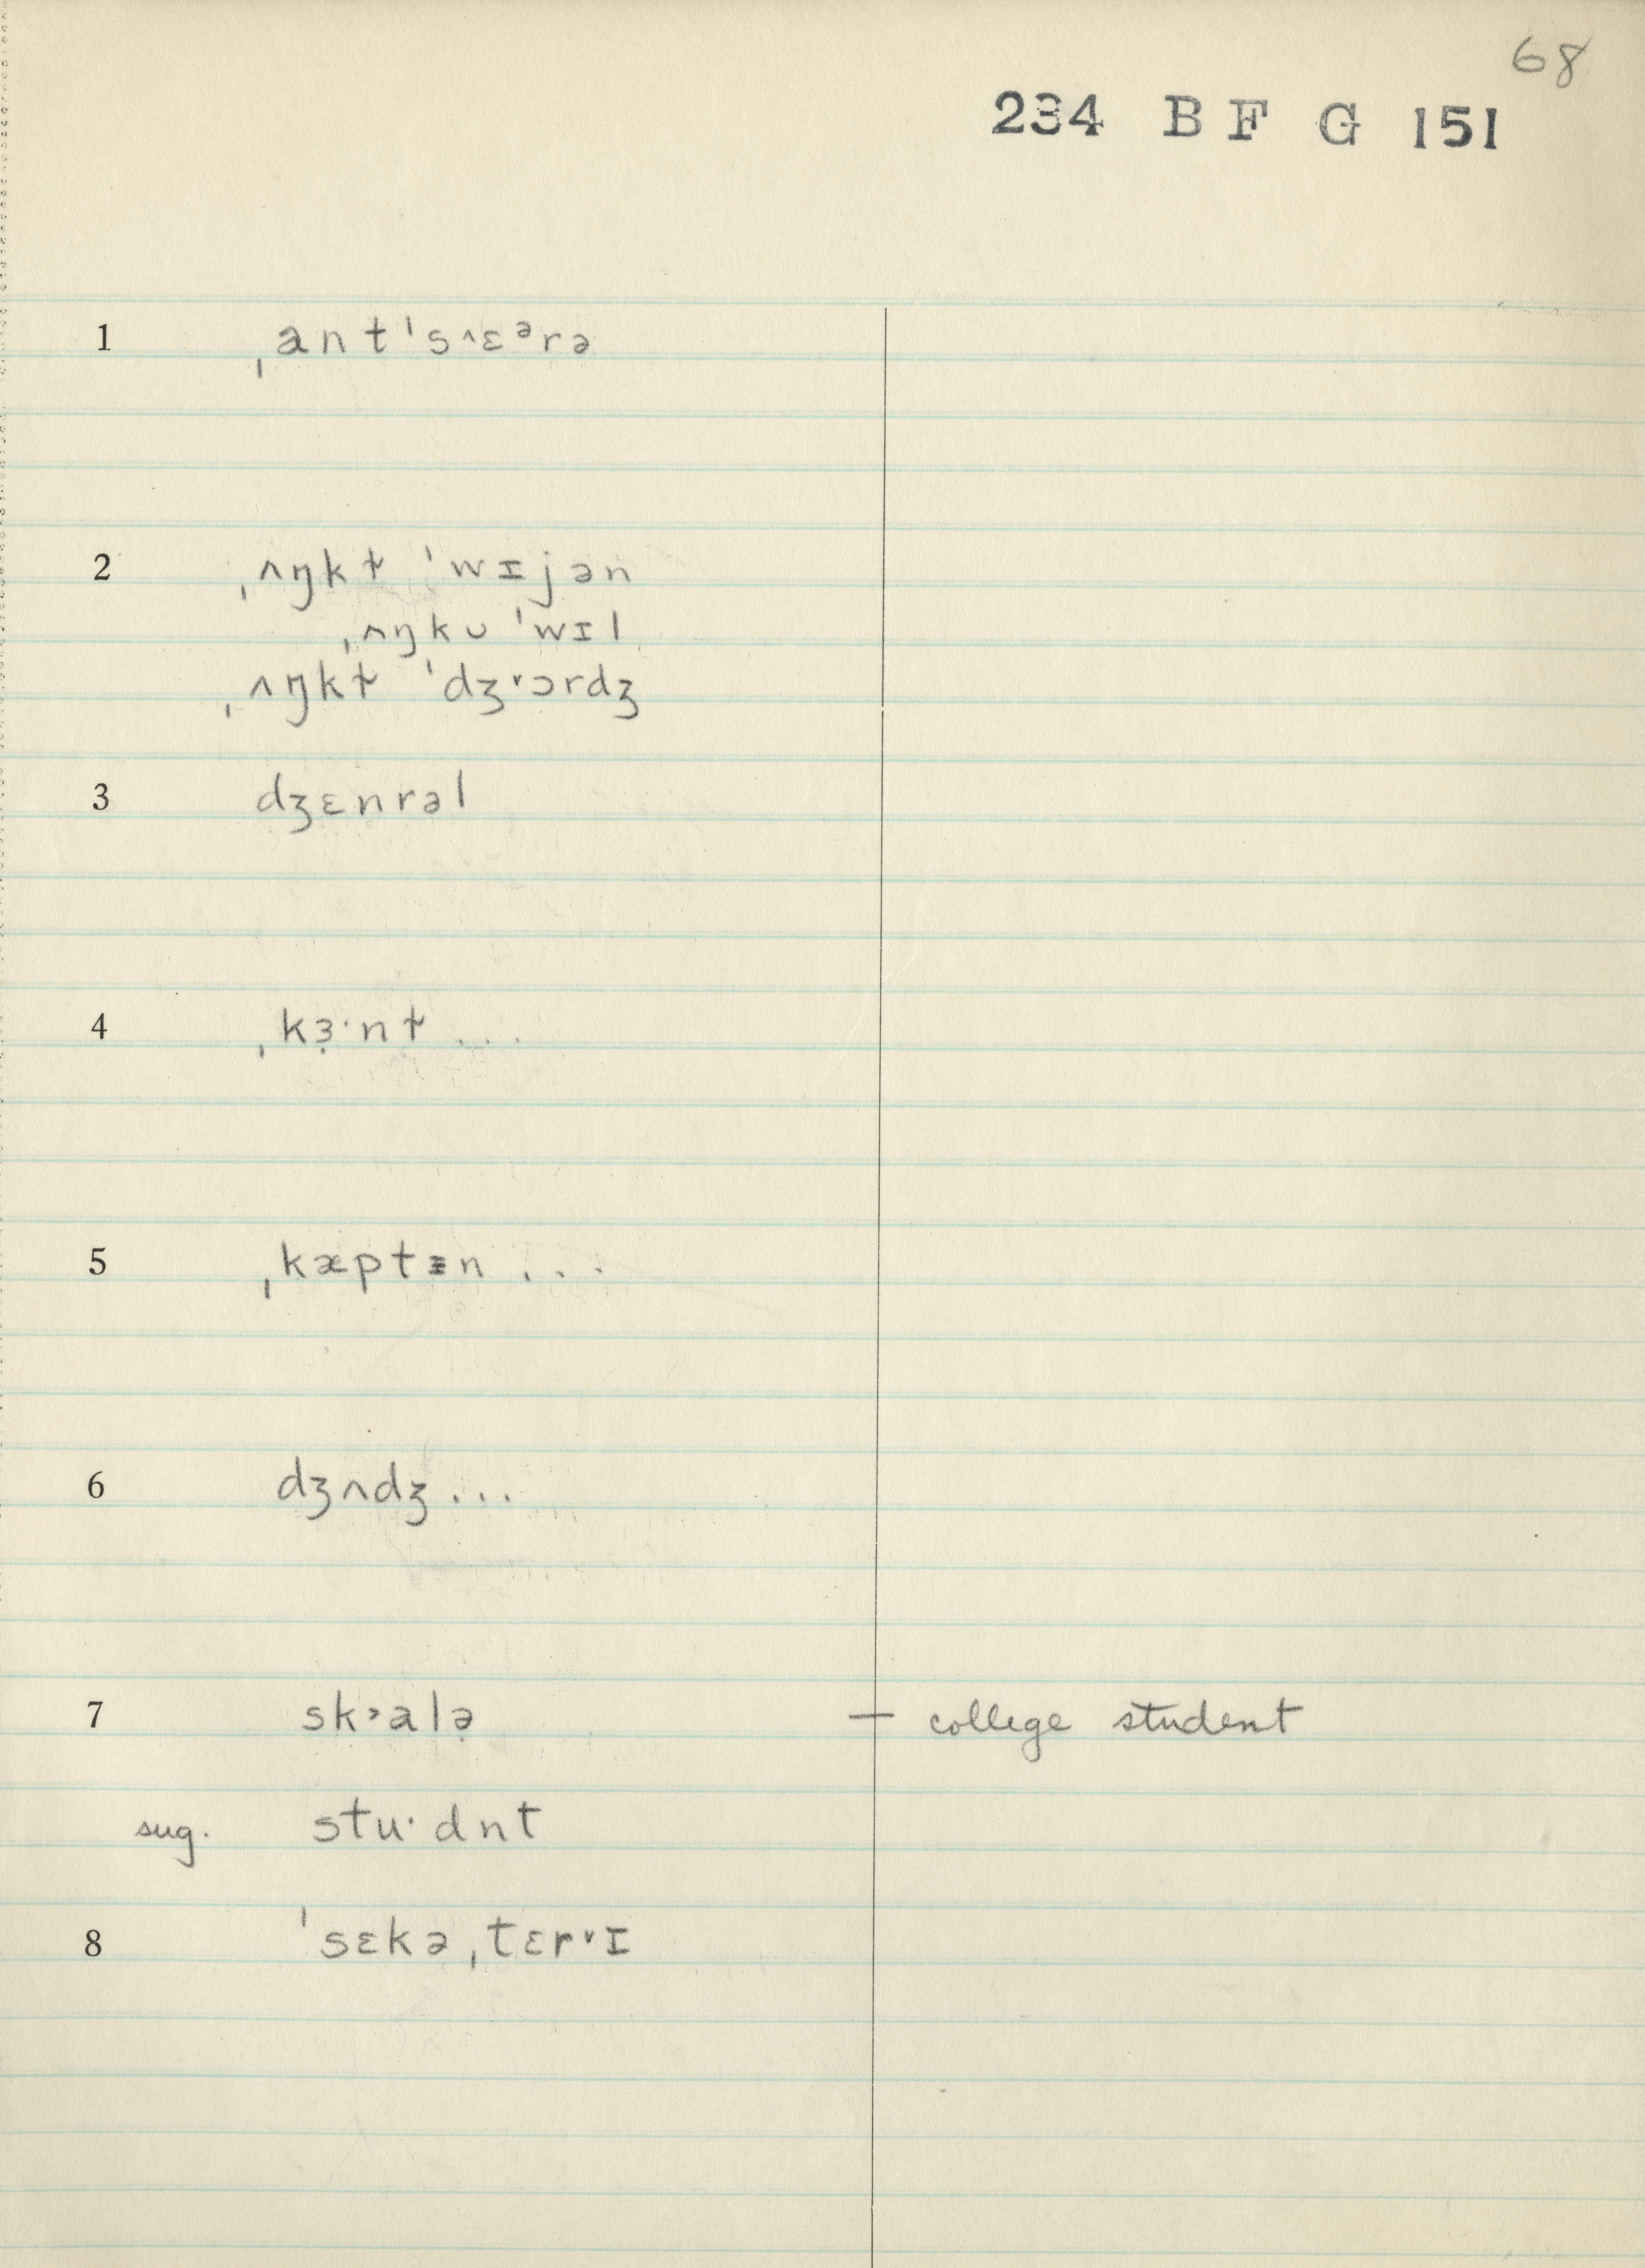 68
234 B F G 151
1 ˌant ˈs^ɛᵊrə
2 ˌʌŋkɫ ˈwɪjən
ˌʌŋkʊ ˈwɪl
ˌʌŋkɫ ˈdʒ˅ɔrdʒ
3 dʒɛnrəl
4 ˌkɜ̣·nɫ ...
5 ˌkæptɪn ...
6 dʒʌdʒ ...
7 sk˃alə̣ — college student
sug. stu·dnt
8 ˈsɛkəˌtɛr˅ɪ